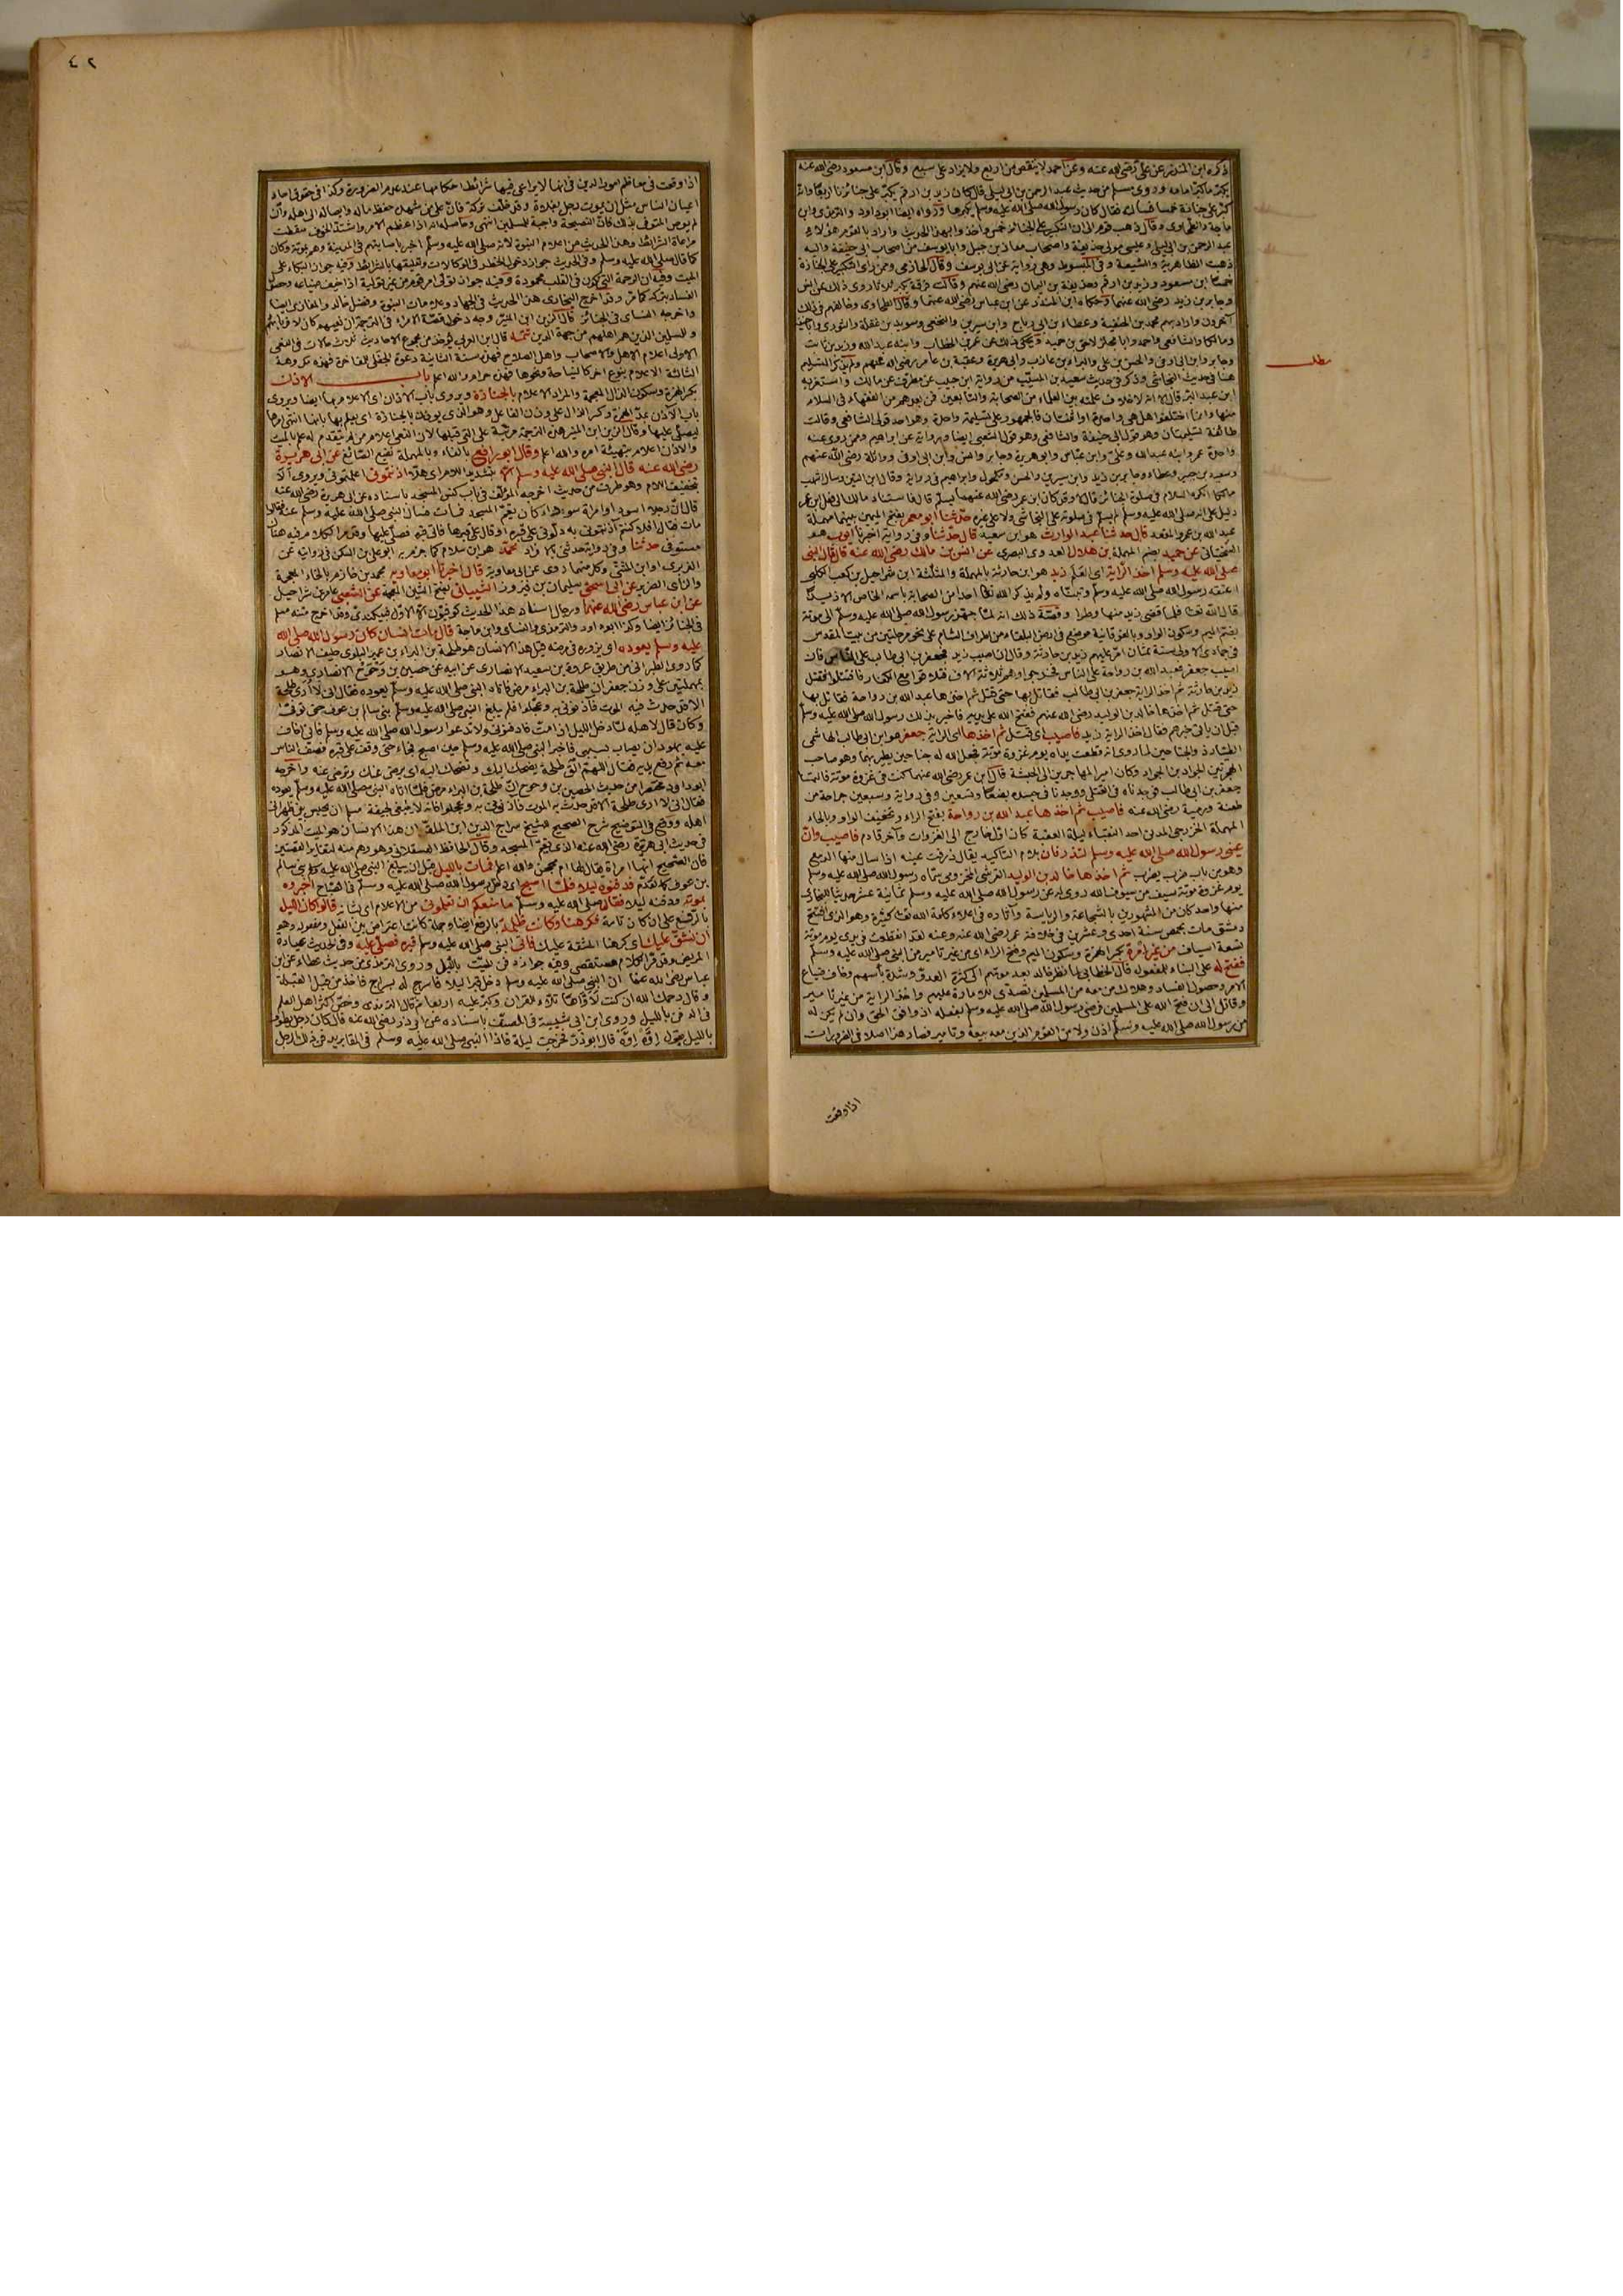 ذكره ابن المنذر عن علي رضي الله عنه وعن احمد لا ينقص من اربع ولا يزاد على سبع وقال ابن مسعود رضي الله عنه
يكبر ما كبر امامه وروى مسلم من حديث عبد الرحمن بن ابي ليلى قال كان زيد بن ارقم يكبر على جنائزنا اربعا وانه
كبر على جنازة خمسا فسالته فقال كان رسول الله صلى الله عليه وسلم يكبرها ورواه ايضا ابو داود والترمذي وابن
ماجة والطحاوي وقال ذهب قوم الى ان التكبير على الجنائز خمس واخذوا بهذا الحديث واراد بالقوم هؤلاء
عبد الرحمن بن ابي ليلى وعيسى مولى حذيفة واصحاب معاذ بن جبل وابا يوسف من اصحاب ابي حنيفة واليه
ذهبت الظاهرية والشيعة وفي المبسوط وهي رواية عن ابي يوسف وقال الحازمي وممن راى التكبير على الجنازة
خمسا ابن مسعود وزيد بن ارقم وحذيفة بن اليمان رضي الله عنهم وقالت فرقة يكبر ثلاثا روى ذلك عن انس
وجابر بن زيد رضي الله عنهما وحكاه ابن المنذر عن ابن عباس رضي الله عنهما وقال الطحاوي وخالفهم في ذلك
آخرون واراد بهم محمد بن الحنفية وعطاء بن ابي رباح وابن سيرين والنخعي وسويد بن غفلة والثوري وابا حنيفة
ومالكا والشافعي واحمد وابا مجلز لاحق بن حميد ويحكى ذلك عن عمر بن الخطاب وابنه عبد الله وزيد بن ثابت
وجابر وابن ابي اوفى والحسن بن علي والبراء بن عازب وابي هريرة وعقبة بن عامر رضي الله عنهم ولم يذكر التسليم
مطلب
هنا في حديث النجاشي وذكر في حديث سعيد بن المسيب من رواية ابن حبيب عن مطرف عن مالك واستغربه
ابن عبد البر قال الا انه لا خلاف علمته بين العلماء من الصحابة والتابعين فمن بعدهم من الفقهاء في السلام
منها وانما اختلفوا هل هي واحدة او اثنتان فالجمهور على تسليمة واحدة وهو احد قولي الشافعي وقالت
طائفة تسليمتان وهو قول ابي حنيفة والشافعي وهو قول الشعبي ايضا ورواية عن ابراهيم وممن روى عنه
واحدة عمر وابنه عبد الله وعلي وابن عباس وابو هريرة وجابر وانس وابن ابي اوفى وواثلة رضي الله عنهم
وسعيد بن جبير وعطاء وجابر بن زيد وابن سيرين والحسن ومكحول وابراهيم في رواية وقال ابن التين وسال اشهب
مالكا اتكره السلام في صلوة الجنائز قال لا وقد كان ابن عمر رضي الله عنهما يسلم قال فاستناد مالك الى فعل ابن عمر
دليل على انه صلى الله عليه وسلم لم يسلم في صلوته على النجاشي ولا على غيره حدثنا ابو معمر بفتح الميمين بينهما مهملة
عبد الله بن عمرو المقعد قال حدثنا عبد الوارث هو ابن سعيد قال حدثنا وفي رواية اخبرنا ايوب هو
السختياني عن حميد بضم المهملة بن هلال العدوي البصري عن انس بن مالك رضي الله عنه قال قال النبي
صلى الله عليه وسلم اخذ الراية اي العلم زيد هو ابن حارثة بالمهملة والمثلثة ابن شراحيل بن كعب الكلبي
اعتقه رسول الله صلى الله عليه وسلم وتبناه ولم يذكر الله تعالى احدا من الصحابة باسمه الخاص الا زيدا
قال الله تعالى فلما قضى زيد منها وطرا وقصة ذلك انه لما جهز رسول الله صلى الله عليه وسلم الى موتة
بضم الميم وسكون الواو وبالفوقانية موضع في ارض البلقاء من اطراف الشام على نحو مرحلتين من بيت المقدس
في جمادى الاولى سنة ثمان امر عليهم زيد بن حارثة وقال ان اصيب زيد فجعفر بن ابي طالب على الناس فان
اصيب جعفر فعبد الله بن رواحة على الناس فخرجوا وهم ثلاثة آلاف فتلاقوا مع الكفار فاقتتلوا فقتل
زيد بن حارثة ثم اخذ الراية جعفر بن ابي طالب فقاتل بها حتى قتل ثم اخذها عبد الله بن رواحة فقاتل بها
حتى قتل ثم اخذها خالد بن الوليد رضي الله عنهم ففتح الله على يديه فاخبر بذلك رسول الله صلى الله عليه وسلم
قبل ان ياتي خبرهم فقال اخذ الراية زيد فاصيب اي قتل ثم اخذها اي الراية جعفر هو ابن ابي طالب الهاشمي
الطيار ذو الجناحين لما روى انه قطعت يداه يوم غزوة موتة فجعل الله له جناحين يطير بهما وهو صاحب
الهجرتين الجواد بن الجواد وكان امير المهاجرين الى الحبشة قال ابن عمر رضي الله عنهما كنت في غزوة موتة فالتمسنا
جعفر بن ابي طالب فوجدناه في القتلى ووجدنا في جسده بضعا وتسعين وفي رواية وسبعين جراحة من
طعنة ورمية رضي الله عنه فاصيب ثم اخذها عبد الله بن رواحة بفتح الراء وتخفيف الواو وبالحاء
المهملة الخزرجي المدني احد النقباء ليلة العقبة كان اول خارج الى الغزوات وآخر قادم فاصيب وان
عيني رسول الله صلى الله عليه وسلم لتذرفان بلام التاكيد يقال ذرفت عينه اذا سال منها الدمع
وهو من باب ضرب يضرب ثم اخذها خالد بن الوليد القرشي المخزومي سماه رسول الله صلى الله عليه وسلم
يوم غزوة موتة سيف من سيوف الله روى له عن رسول الله صلى الله عليه وسلم ثمانية عشر حديثا للبخاري
منها واحد كان من المشهورين بالشجاعة والرياسة وآثاره في اعلاء كلمة الله تعالى كثيرة وهو الذي افتتح
دمشق مات بحمص سنة احدى وعشرين في خلافة عمر رضي الله عنه وعنه لقد انقطعت في يدي يوم موتة
تسعة اسياف من غير امرة بكسر الهمزة وسكون الميم وفتح الراء اي من غير تامير من النبي صلى الله عليه وسلم
ففتح له على البناء للمفعول قال الخطابي لما نظر خالد بعد موتهم الى كثرة العدو وشدة باسهم وخاف ضياع
الامر وحصول الفساد وهلاك من معه من المسلمين تصدى للامارة عليهم واخذ الراية من غير تامير
وقاتل الى ان فتح الله على المسلمين فرضي رسول الله صلى الله عليه وسلم بفعله اذ وافق الحق وان لم يكن له
من رسول الله صلى الله عليه وسلم اذن ولا من القوم الذين معه بيعة وتامير فصار هذا اصلا في الضرورات
اذا وقعت
٤٢
اذا وقعت في معاظم امور الدين في انها لا يراعى فيها شرائط احكامها عند عدم الضرورة وكذا في حقوق احاد
اعيان الناس مثل ان يموت رجل بفلاة وقد خلف تركة فان على من شهده حفظ ماله وايصاله الى اهله وان
لم يوص المتوفى بذلك فان النصيحة واجبة للمسلمين انتهى وحاصله انه اذا عظم الامر واشتد الخوف سقطت
مراعاة الشرائط وهذا الحديث من اعلام النبوة لانه صلى الله عليه وسلم اخبر باصابتهم في المدينة وهم بموتة وكان
كما قال صلى الله عليه وسلم وفي الحديث جواز دخول الخطر في الوكالات وتعليقها بالشرائط وفيه جواز البكاء على
الميت وفيه ان الرحمة التي تكون في القلب محمودة وفيه جواز تولى امر قوم من غير تولية اذا خيف ضياعه وحصول
الفساد بتركه كما مر وقد اخرج البخاري هذا الحديث في الجهاد وعلامات النبوة وفضل خالد والمغازي ايضا
واخرجه النسائي في الجنائز قال الزين ابن المنير وجه دخول قصة الامراء في الترجمة ان نعيهم كان لاقاربهم
وللمسلمين الذين هم اهلهم من جهة الدين تتمة قال ابن العربي يؤخذ من مجموع الاحاديث ثلاث حالات في النعي
الاولى اعلام الاهل والاصحاب واهل الصلاح فهذه سنة الثانية دعوة الحفل للمفاخرة فهذه تكره
الثالثة الاعلام بنوع آخر كالنياحة ونحوها فهذه حرام والله اعلم باب الاذن
بكسر الهمزة وسكون الذال المعجمة والمراد الاعلام بالجنازة ويروى باب الاذان اي الاعلام بها ايضا ويروى
باب الآذن بمد الهمزة وكسر الذال على وزن الفاعل وهو الذي يؤذن بالجنازة اي يعلم بها بانها انتهى امرها
ليصلى عليها وقال الزين ابن المنير هذه الترجمة مرتبة على التي قبلها لان النعي اعلام من لم يتقدم له علم بالميت
والاذان اعلام بتهيئة امره والله اعلم وقال ابو رافع بالفاء وبالمهملة نفيع الصائغ عن ابي هريرة
رضي الله عنه قال النبي صلى الله عليه وسلم الا بتشديد اللام اي هلا آذنتموني اعلمتموني ويروى الا
بتخفيف اللام وهو طرف من حديث اخرجه المؤلف في باب كنس المسجد باسناده عن ابي هريرة رضي الله عنه
قال ان رجلا اسود او امراة سوداء كان يقم المسجد فمات فسال النبي صلى الله عليه وسلم عنه فقالوا
مات فقال افلا كنتم آذنتموني به دلوني على قبره او قال على قبرها فاتى قبره فصلى عليها وقد مر الكلام فيه هناك
مستوفى حدثنا وفي رواية حدثني بالافراد محمد هو ابن سلام كما جزم به ابو علي بن السكن في روايته عن
الفربري او ابن المثنى وكل منهما روى عن ابي معاوية قال اخبرنا ابو معاوية محمد بن خازم بالخاء المعجمة
والزاي الضرير عن ابي اسحق سليمان بن فيروز الشيباني بفتح الشين المعجمة عن الشعبي عامر بن شراحيل
عن ابن عباس رضي الله عنهما ورجال اسناد هذا الحديث كوفيون الا الاول فبيكندي وقد اخرج متنه مسلم
في الجنائز ايضا وكذا ابو داود والترمذي والنسائي وابن ماجة قال مات انسان كان رسول الله صلى الله
عليه وسلم يعوده اي يزوره في مرضه قيل هذا الانسان هو طلحة بن البراء بن عمير البلوي حليف الانصار
كما روى الطبراني من طريق عروة بن سعيد الانصاري عن ابيه عن حصين بن وحوح الانصاري وهو
بمهملتين على وزن جعفر ان طلحة بن البراء مرض فاتاه النبي صلى الله عليه وسلم يعوده فقال اني لا ارى طلحة
الا قد حدث فيه الموت فآذنوني به وعجلوا فلم يبلغ النبي صلى الله عليه وسلم بني سالم بن عوف حتى توفي
وكان قال لاهله لما دخل الليل اذا مت فادفنوني ولا تدعوا رسول الله صلى الله عليه وسلم فاني اخاف
عليه يهودا ان يصاب بسببي فاخبر النبي صلى الله عليه وسلم حين اصبح فجاء حتى وقف على قبره فصف الناس
معه ثم رفع يديه فقال اللهم الق طلحة يضحك اليك وتضحك اليه اي يرضى عنك وترضى عنه واخرجه
ابو داود مختصرا من حديث الحصين بن وحوح ان طلحة بن البراء مرض فلما اتاه النبي صلى الله عليه وسلم يعوده
فقال اني لا ارى طلحة الا قد حدث به الموت فآذنوني به وعجلوا فانه لا ينبغي لجيفة مسلم ان تحبس بين ظهراني
اهله ووقع في التوضيح شرح الصحيح للشيخ سراج الدين ابن الملقن ان هذا الانسان هو الميت المذكور
في حديث ابي هريرة رضي الله عنه الذي كان يقم المسجد وقال الحافظ العسقلاني وهو وهم منه لتغاير القصتين
فان الصحيح انها امراة يقال لها ام محجن والله اعلم فمات بالليل قبل ان يبلغ النبي صلى الله عليه وسلم بني سالم
بن عوف كما تقدم فدفنوه ليلا فلما اصبح اي دخل رسول الله صلى الله عليه وسلم في الصباح اخبروه
بموته ودفنه ليلا فقال صلى الله عليه وسلم ما منعكم ان تعلموني من الاعلام اي بشانه قالوا كان الليل
بالرفع على ان كان تامة فكرهنا وكانت ظلمة بالرفع ايضا وجملة كانت اعتراض بين الفعل ومفعوله وهو
ان نشق عليك اي كرهنا المشقة عليك فاتى النبي صلى الله عليه وسلم قبره فصلى عليه وفي الحديث عيادة
المريض وقد مر الكلام مستقصى وفيه جواز دفن الميت بالليل وروى الترمذي من حديث عطاء عن ابن
عباس رضي الله عنهما ان النبي صلى الله عليه وسلم دخل قبرا ليلا فاسرج له بسراج فاخذ من قبل القبلة
وقال رحمك الله ان كنت لاواها تلاء للقرآن وكبر عليه اربعا ثم قال الترمذي ورخص اكثر اهل العلم
في الدفن بالليل وروى ابن ابي شيبة في المصنف باسناده عن ابي ذر رضي الله عنه قال كان رجل يطوف
بالليل يقول اوه اوه قال ابو ذر فخرجت ليلة فاذا النبي صلى الله عليه وسلم في المقابر يدفن ذلك الرجل